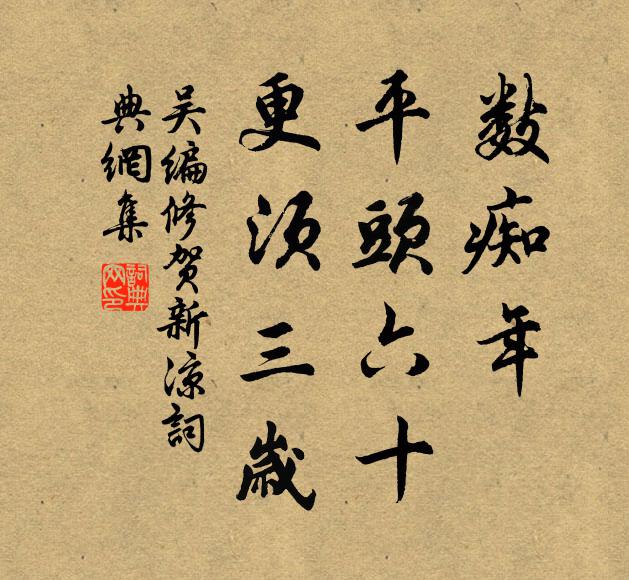 数痴年
平頭六十
更須三歲
吴编修贺新凉詞
典網集
詞典
网印